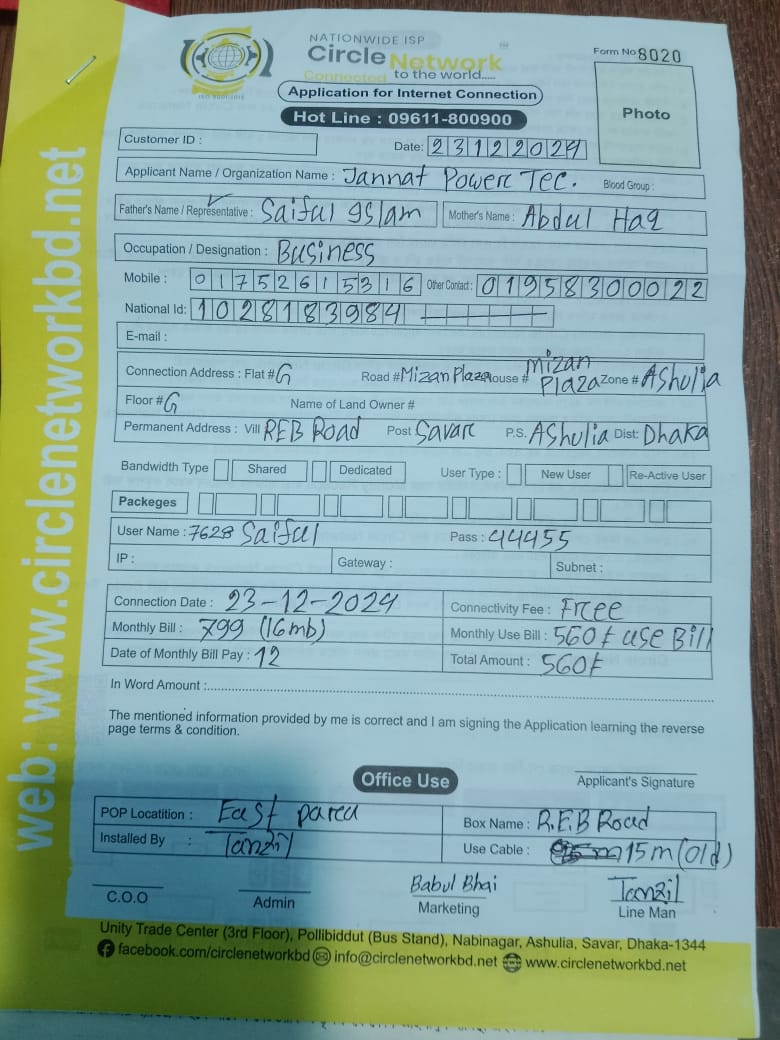 NATIONWIDE ISP
Circle Network
Connected to the world.....
ISO 9001:2015
Form No 8020
Application for Internet Connection
Hot Line : 09611-800900
Photo
Customer ID :
Date: 23122024
Applicant Name / Organization Name : Jannat Power Tec. Blood Group :
Father's Name / Representative : Saiful Islam Mother's Name : Abdul Haq
Occupation / Designation : Business
Mobile : 01752615316 Other Contact : 01958300022
National Id: 1028183984
E-mail :
Connection Address : Flat # G Road # Mizan Plaza House # Mizan Plaza Zone # Ashulia
Floor # G Name of Land Owner #
Permanent Address : Vill REB Road Post Savar P.S. Ashulia Dist: Dhaka
Bandwidth Type Shared Dedicated User Type : New User Re-Active User
Packeges
User Name : 7628 Saiful Pass : 44455
IP : Gateway : Subnet :
Connection Date : 23-12-2024 Connectivity Fee : Free
Monthly Bill : 799 (16mb) Monthly Use Bill : 560 ৳ use Bill
Date of Monthly Bill Pay : 12 Total Amount : 560৳
In Word Amount :
The mentioned information provided by me is correct and I am signing the Application learning the reverse
page terms & condition.
Office Use
Applicant's Signature
POP Locatition : East para Box Name : R.E.B Road
Installed By : Tanzil Use Cable : 15m (old)
C.O.O Admin Babul Bhai Marketing Tanzil Line Man
Unity Trade Center (3rd Floor), Pollibiddut (Bus Stand), Nabinagar, Ashulia, Savar, Dhaka-1344
facebook.com/circlenetworkbd info@circlenetworkbd.net www.circlenetworkbd.net
web: www.circlenetworkbd.net